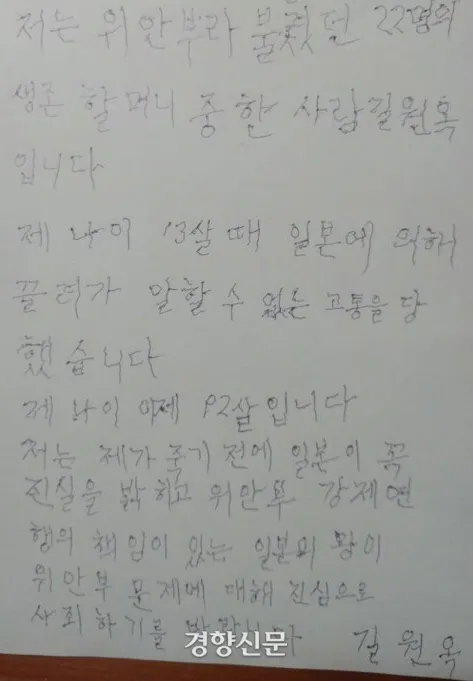 저는 위안부라 불렸던 22명의
생존 할머니 중 한 사람 길원옥
입니다
제 나이 13살 때 일본에 의해
끌려가 말할 수 없는 고통을 당
했습니다
제 나이 이제 92살입니다
저는 제가 죽기 전에 일본이 꼭
진실을 밝히고 위안부 강제연
행의 책임이 있는 일본의 왕이
위안부 문제에 대해 진심으로
사회하기를
경향신문
길원옥